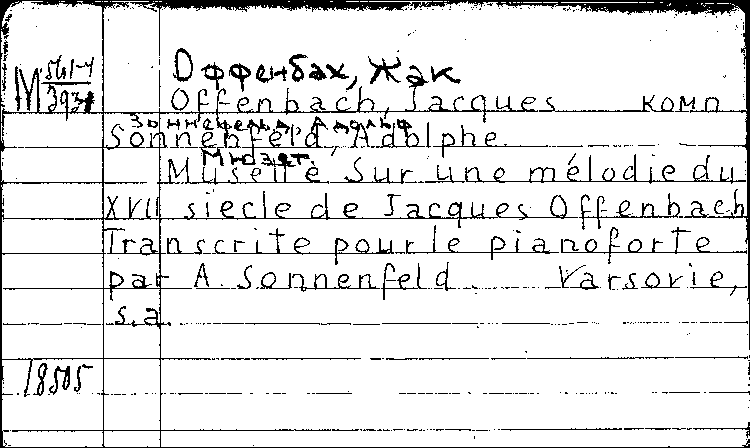 М 561-4
393
Оффенбах, Жак
Offenbach, Jacques комп
Зоннефельд, Адольф
Sonnenfeld, Adolphe.
Мюзет.
Musette sur une mélodie du
XVII siecle de Jacques Offenbach
Transcrite pour le pianoforte
par A. Sonnenfeld. Varsovie,
s.a.
18505